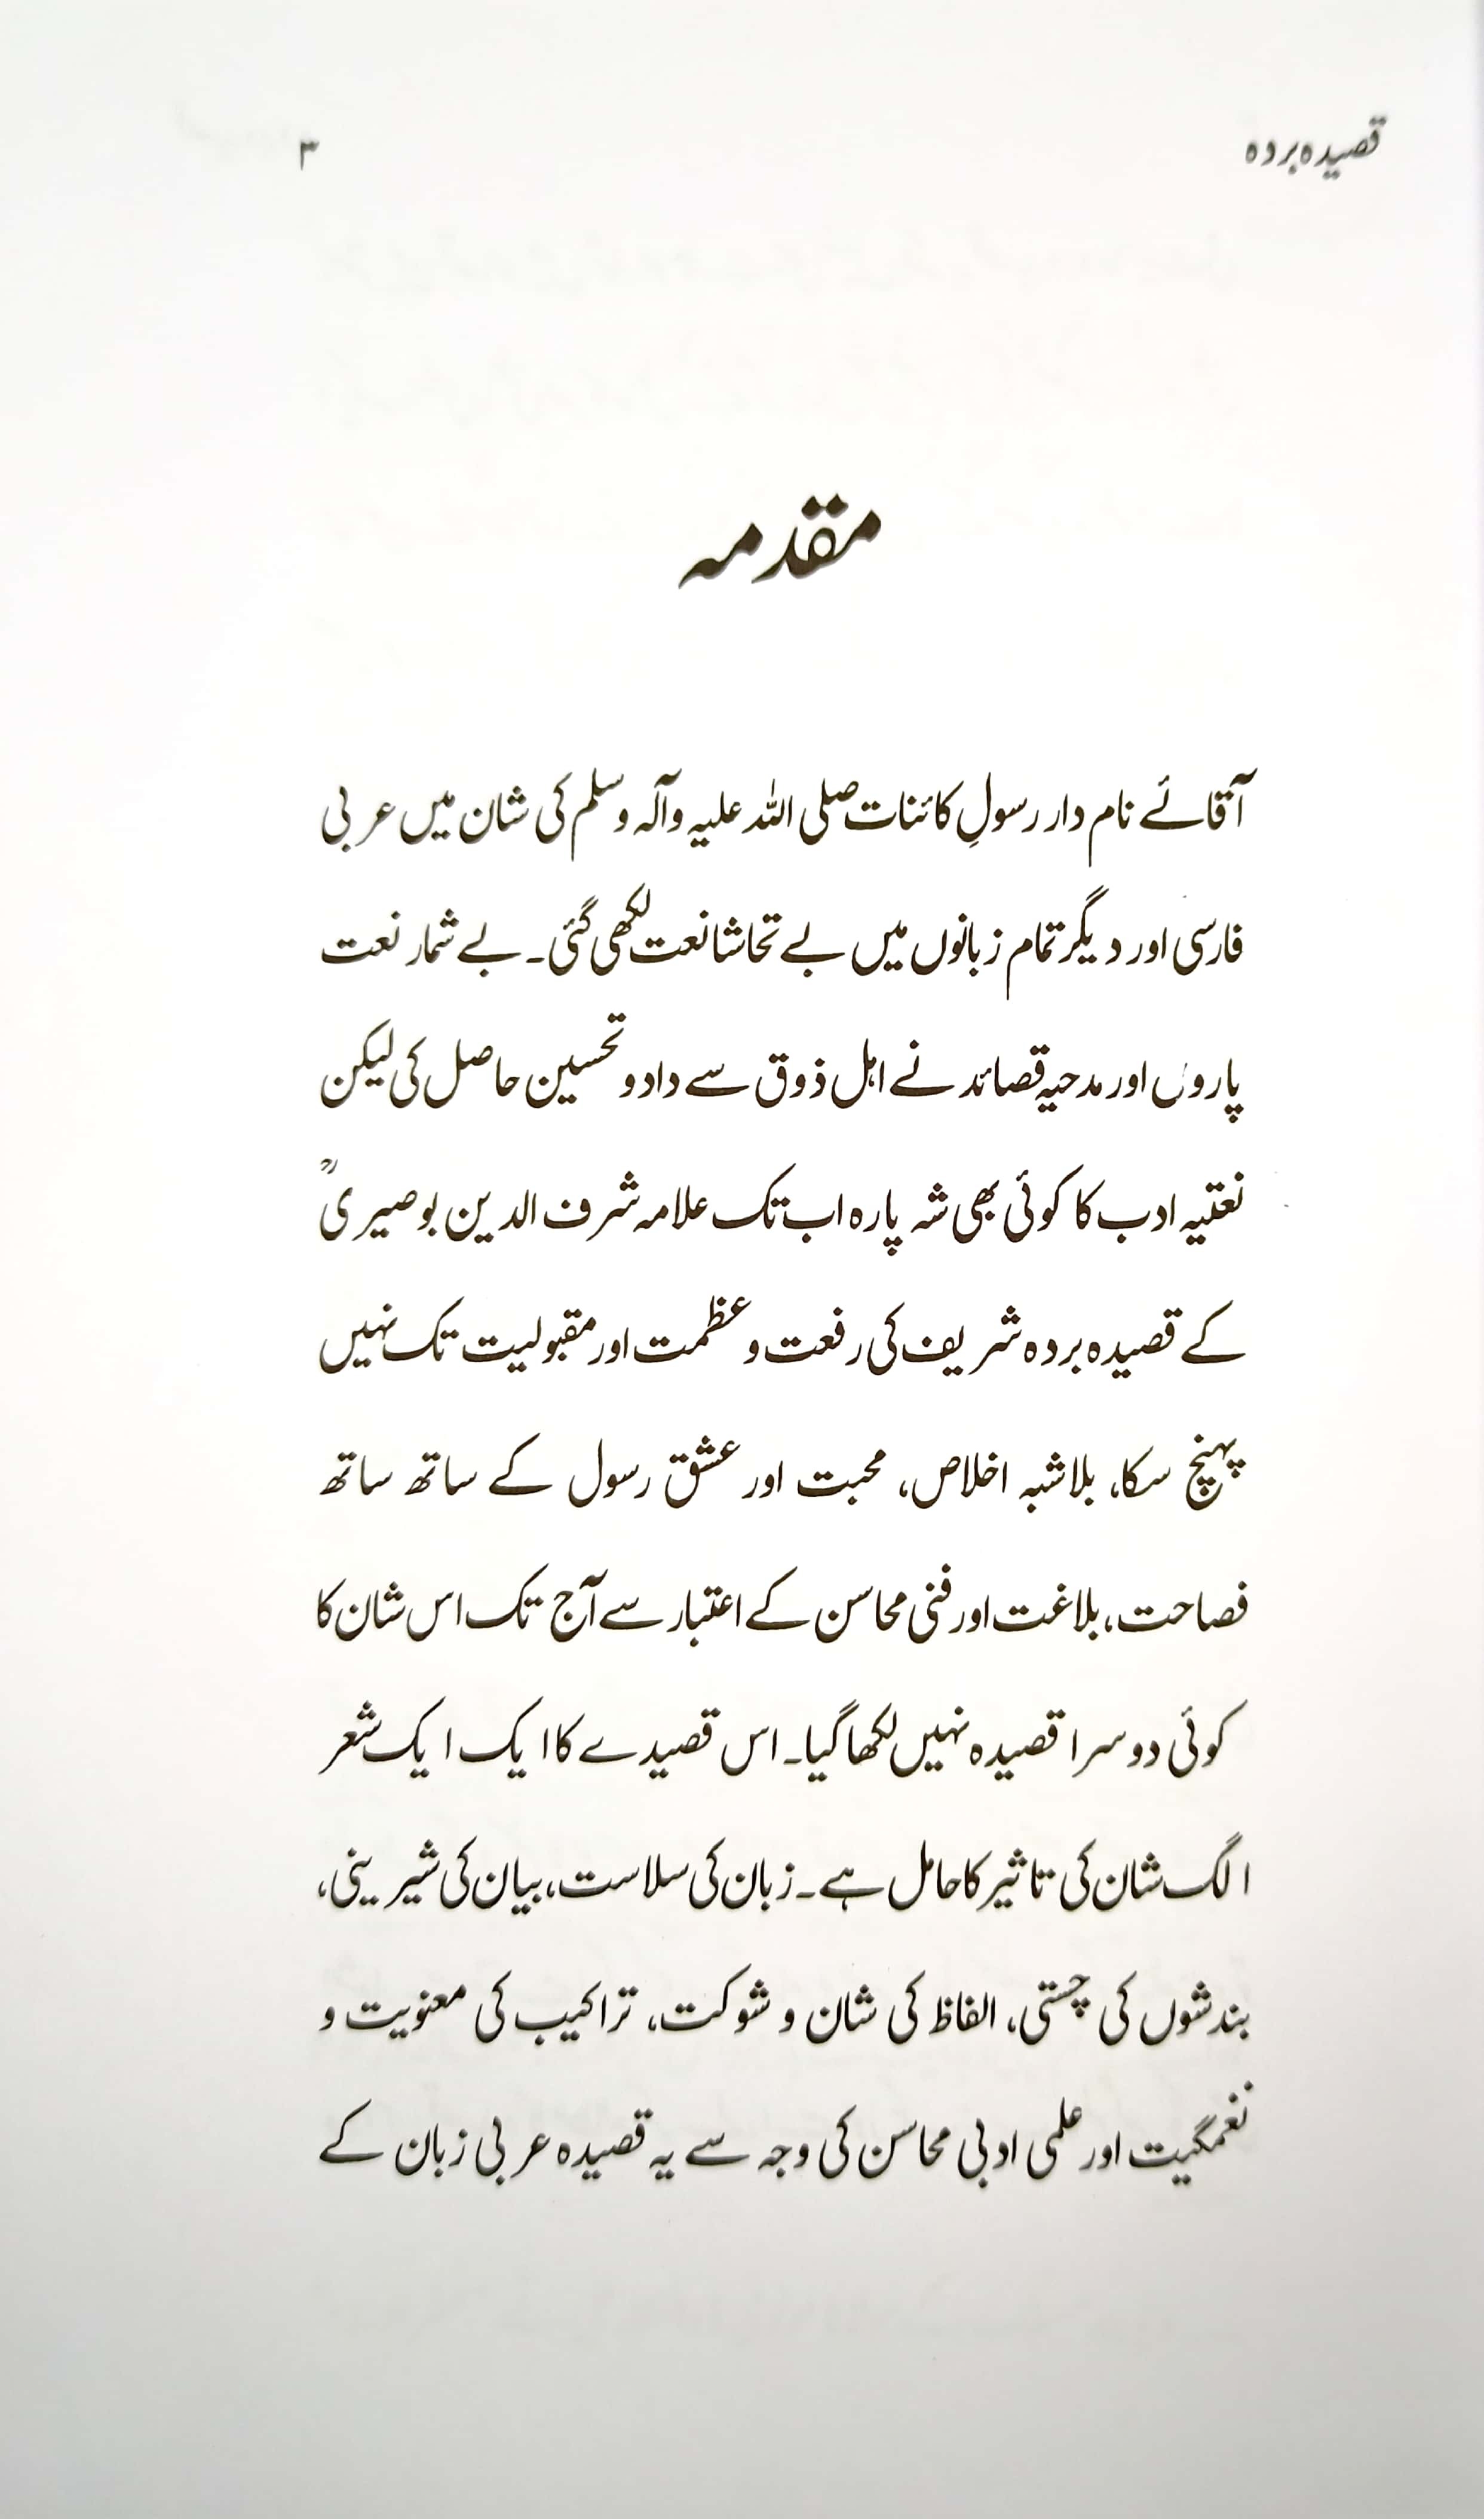 قصیدہ بردہ ۳
مقدمہ
آقائے نام دار رسولِ کائنات صلی اللہ علیہ وآلہ وسلم کی شان میں عربی
فارسی اور دیگر تمام زبانوں میں بے تحاشا نعت لکھی گئی۔ بے شمار نعت
پاروں اور مدحیہ قصائد نے اہل ذوق سے داد و تحسین حاصل کی لیکن
نعتیہ ادب کا کوئی بھی شہ پارہ اب تک علامہ شرف الدین بوصیریؒ
کے قصیدہ بردہ شریف کی رفعت و عظمت اور مقبولیت تک نہیں
پہنچ سکا، بلاشبہ اخلاص، محبت اور عشق رسول کے ساتھ ساتھ
فصاحت، بلاغت اور فنی محاسن کے اعتبار سے آج تک اس شان کا
کوئی دوسرا قصیدہ نہیں لکھا گیا۔ اس قصیدے کا ایک ایک شعر
الگ شان کی تاثیر کا حامل ہے۔ زبان کی سلاست، بیان کی شیرینی،
بندشوں کی چستی، الفاظ کی شان و شوکت، تراکیب کی معنویت و
نغمگیت اور علمی ادبی محاسن کی وجہ سے یہ قصیدہ عربی زبان کے